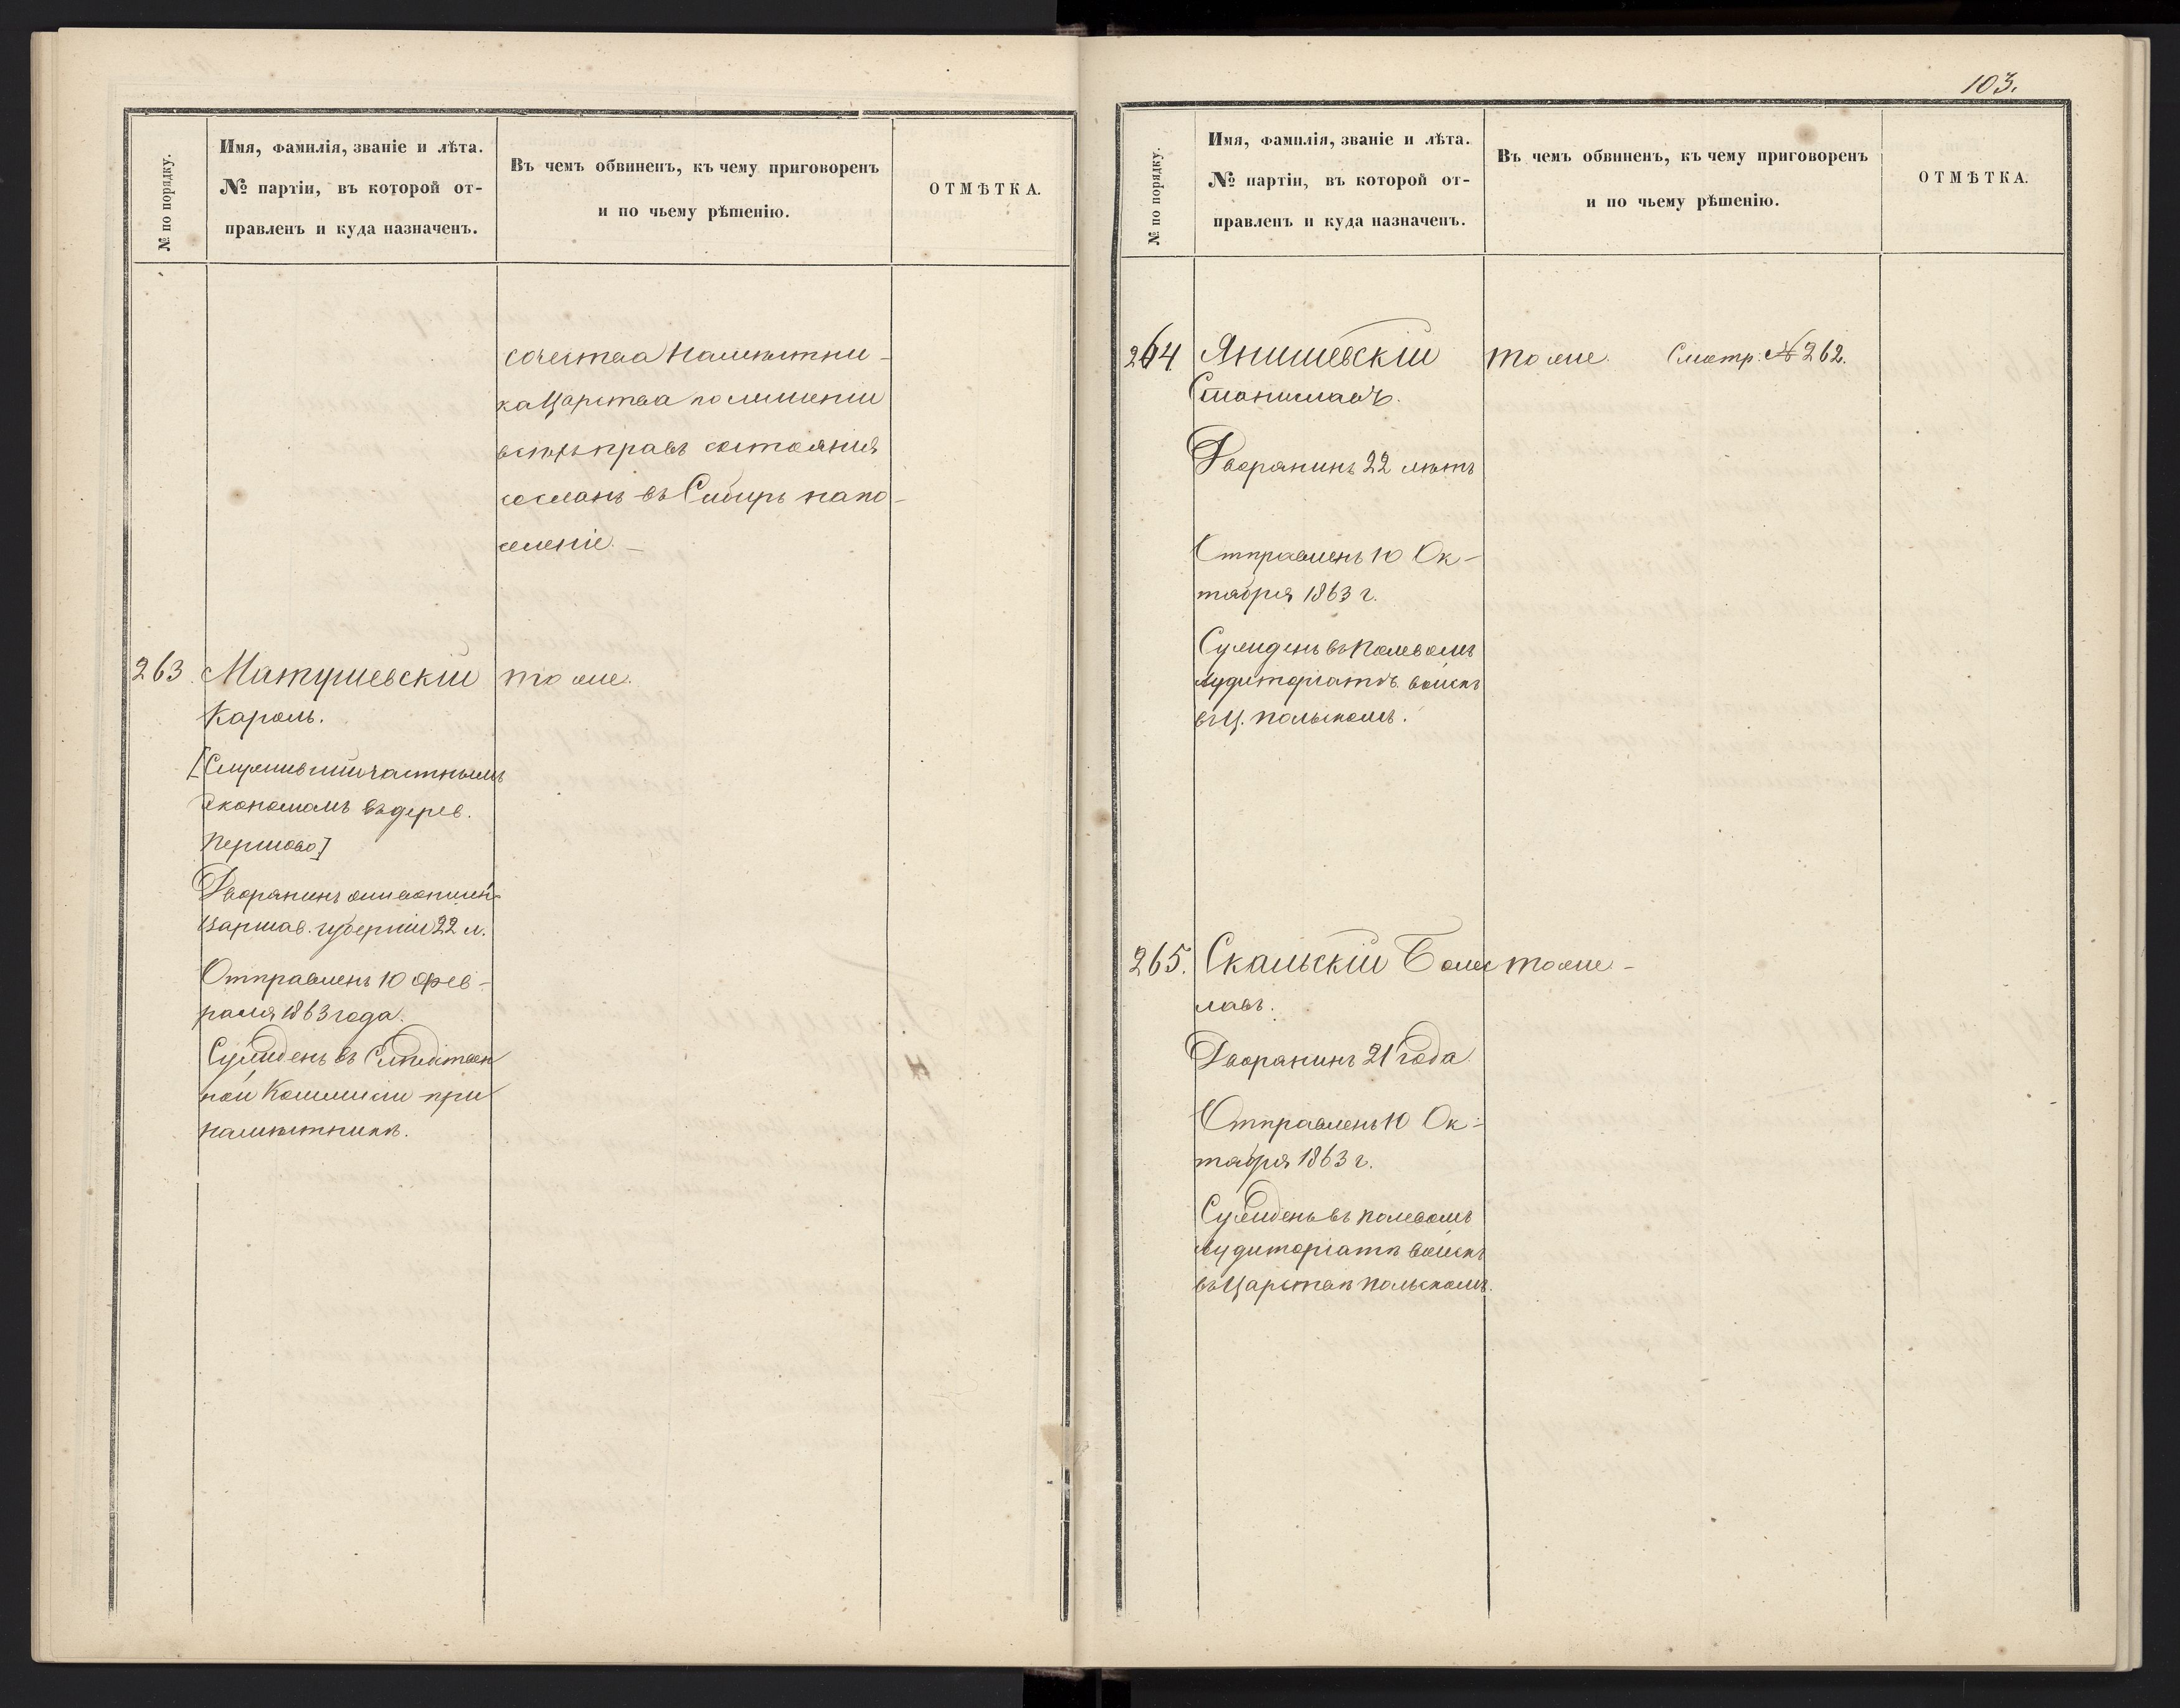 № по порядку.
Имя, фамилія, званіе и лѣта.
№ партіи, въ которой от-
правленъ и куда назначенъ.
Въ чемъ обвиненъ, къ чему приговоренъ
и по чьему рѣшенію.
ОТМѢТКА.
сочества Намѣстни-
ка Царства по лишеніи
всѣхъ правъ состоянія
сосланъ въ Сибирь на по-
селеніе. —
263. Матушевскій то же.
Кароль.
[Служившій частнымъ
экономомъ въ дерев.
Першово]
Дворянинъ
Варшав. губерніи 22 л.
Отправленъ 10 Фев-
раля 1863 года.
Сужденъ въ Слѣдствен
ной Коммисіи при
Намѣстникѣ.
103.
№ по порядку.
Имя, фамилія, званіе и лѣта.
№ партіи, въ которой от-
правленъ и куда назначенъ.
Въ чемъ обвиненъ, къ чему приговоренъ
и по чьему рѣшенію.
ОТМѢТКА.
264. Янишевскій то же. Смотр: № 262.
Станиславъ.
Дворянинъ 22 лѣтъ
Отправленъ 10 Ок-
тября 1863 г.
Сужденъ въ Полевомъ
Аудиторіатѣ войскъ
въ Ц. Польскомъ.
265. Скальскій Болес то же —
лавъ.
Дворянинъ 21 года
Отправленъ 10 Ок-
тября 1863 г.
Сужденъ въ Полевомъ
Аудиторіатѣ войскъ
въ Царствѣ Польскомъ.